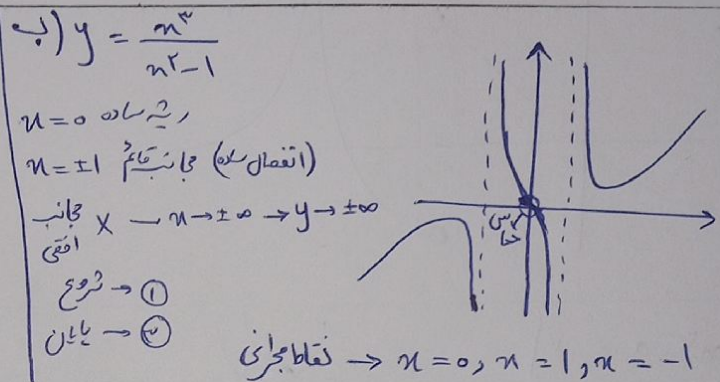 ب) y = x³ / x² - 1
x = 0 ریشه ساده
x = ±1 مجانب قائم (انفصال ساده)
مجانب افقی × — x → ±∞ → y → ±∞
① → شروع
② → پایان
خاص
نقاط بحرانی → x = 0, x = 1, x = -1